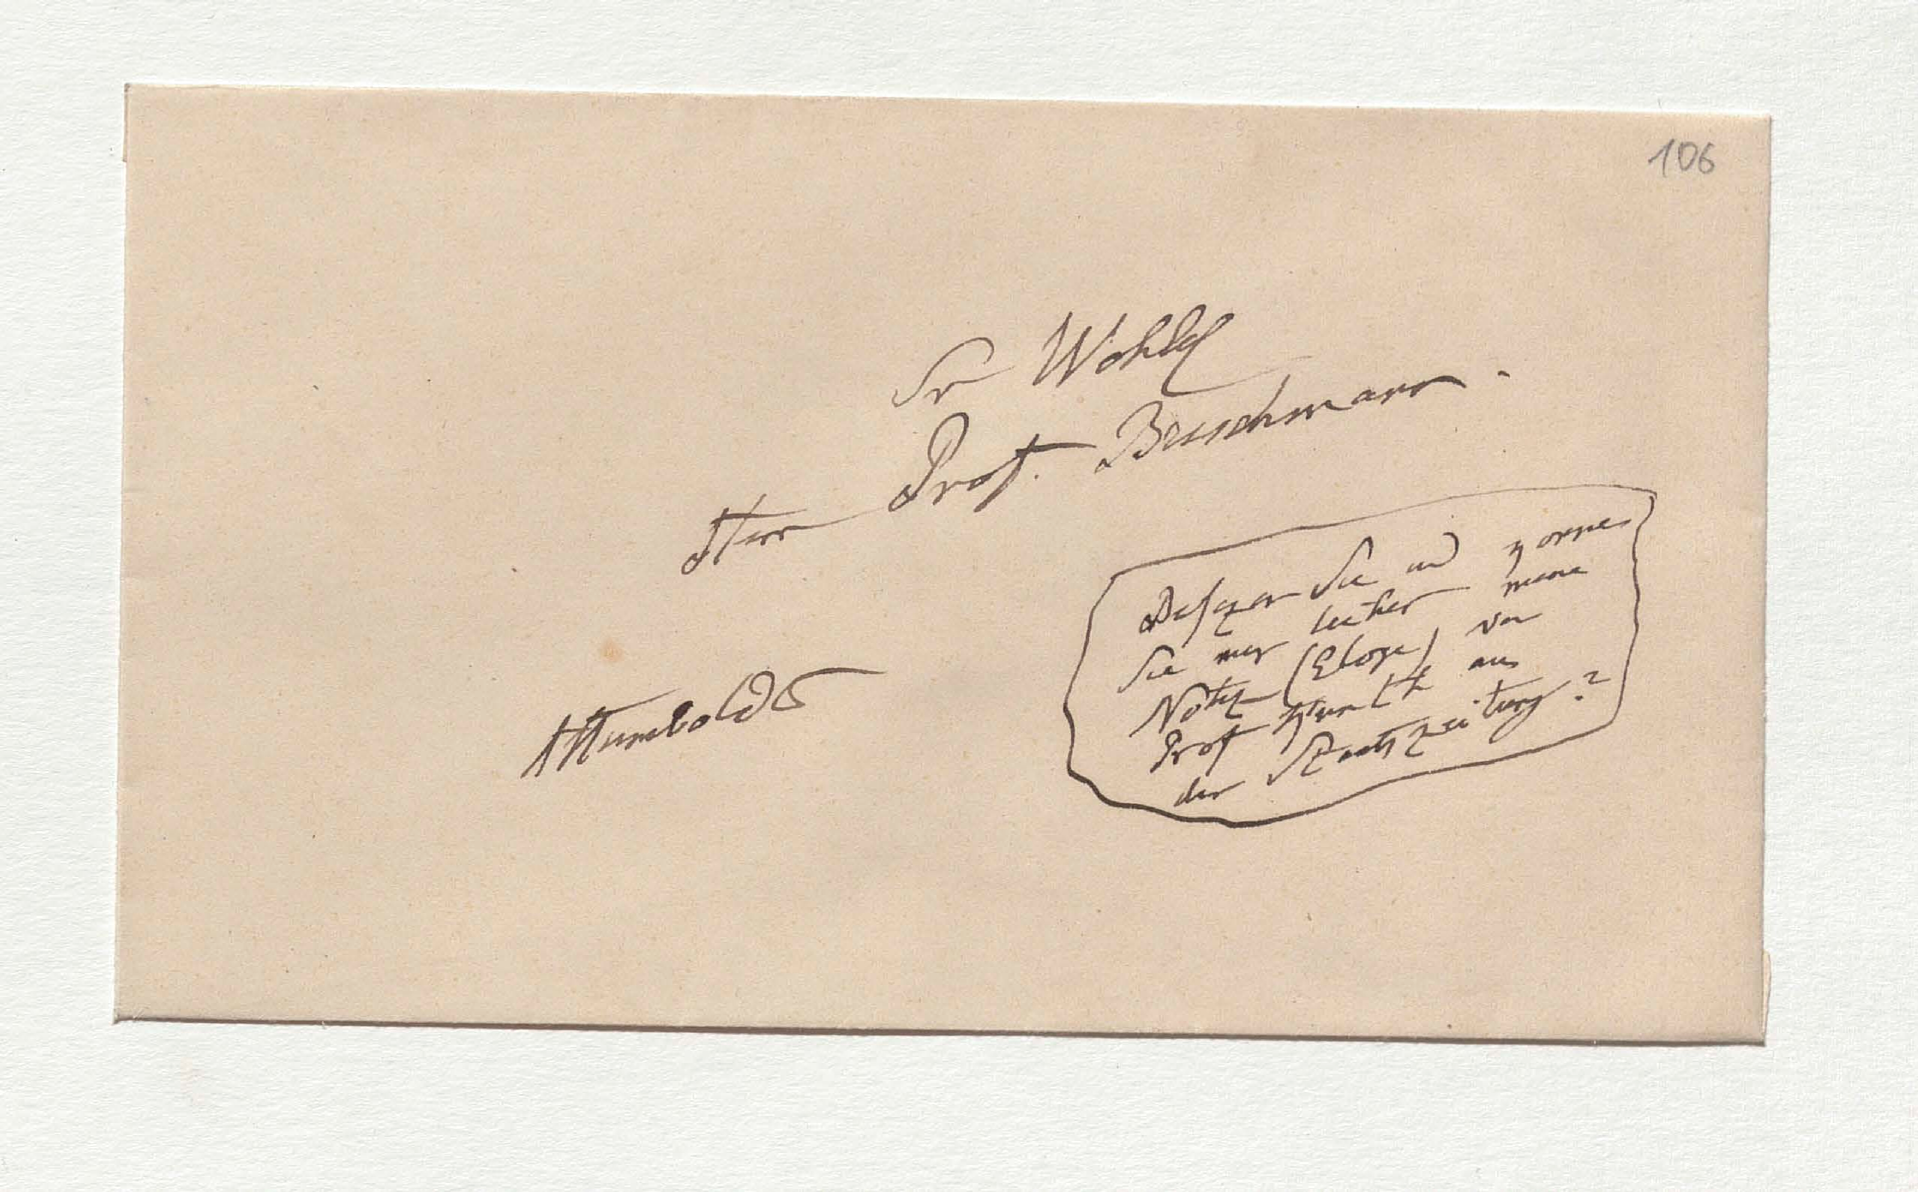 106
Sr Wohlg
Herr Prof. Buschmann.
Besizen Sie und können
Sie mir leihen meine
Notiz (Eloge) von
Prof Kunth aus
der Staatszeitung?
AHumboldt